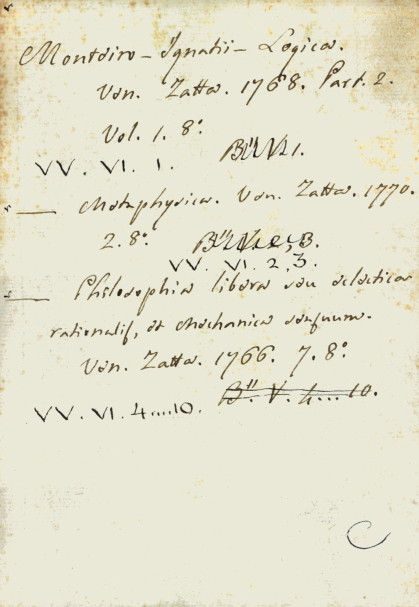 Monteiro - Ignatii - Logica.
Ven. Zatta. 1768. Part. 2.
Vol. 1. 8.º
VV. VI. 1.
— Metaphysica. Ven. Zatta. 1770.
2. 8.º
VV. VI. 2, 3.
— Philosophia libera seu eclectica
rationalis, et Mechanica sensuum.
Ven. Zatta. 1766. 7. 8.º
B. V. 4...10.
VV. VI. 4....10.